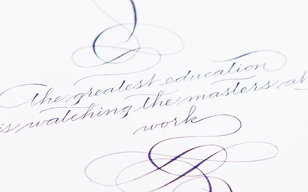 the greatest education
is watching the masters at
work